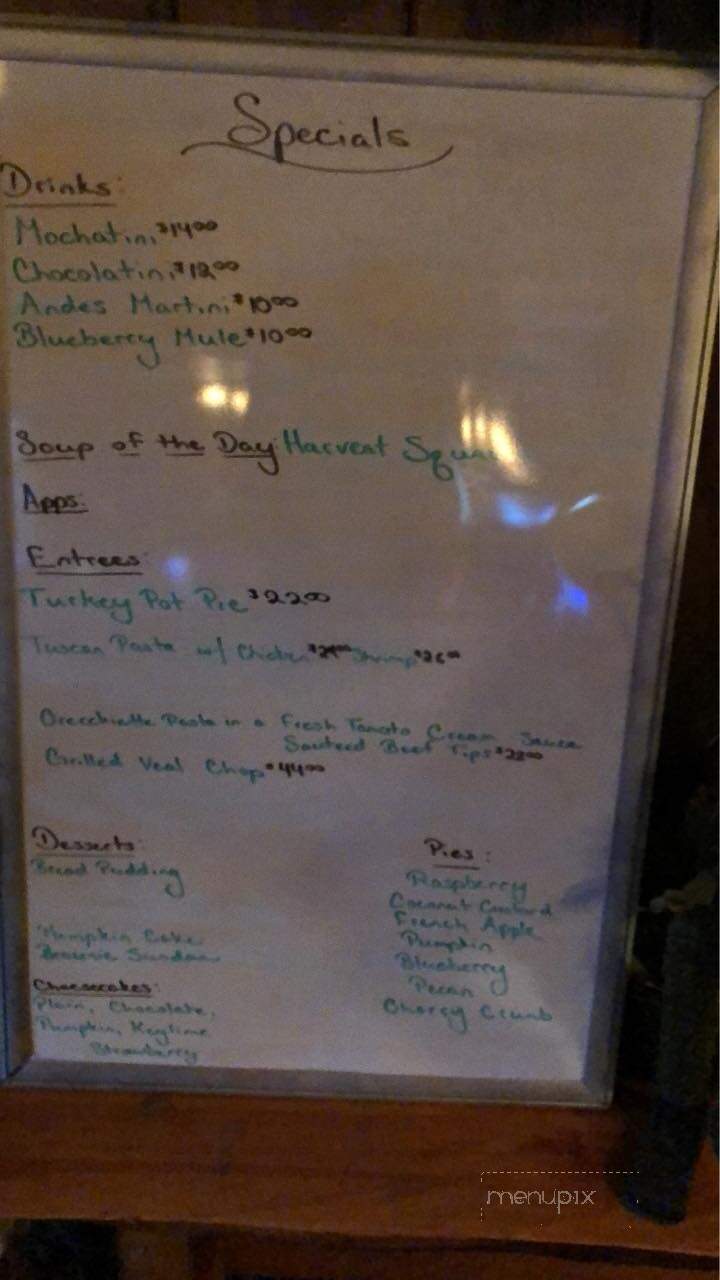 Specials
Drinks:
Mochatini $14.00
Chocolatini $12.00
Andes Martini $10.00
Blueberry Mule $10.00
Soup of the Day: Harvest
Apps:
Entrees:
Turkey Pot Pie $22.00
Tuscan Pasta w/ Chicken Shrimp $26.00
Orecchiette Pasta in a Fresh Tomato Cream Sauce
Sauteed Beef Tips
Grilled Veal Chop $44.00
Desserts:
Bread Pudding
Pumpkin Cake
Brownie Sundae
Cheesecakes:
Plain, Chocolate,
Pumpkin, Keylime
Strawberry
Pies:
Raspberry
Coconut Custard
French Apple
Pumpkin
Blueberry
Pecan
Cherry Crumb
menupix